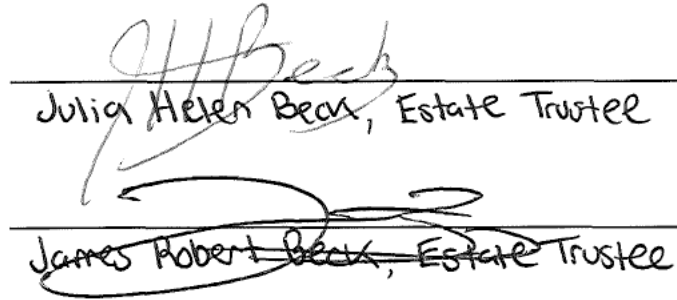 JHBeck
Julia Helen Beck, Estate Trustee
James Robert Beck, Estate Trustee